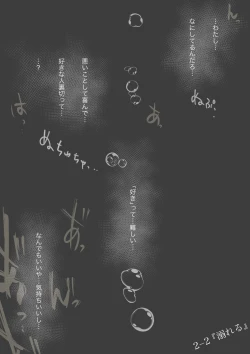 んっ
…わたし…
なにしてるんだろ…
ぬぷ
悪いことして喜んで…
好きな人裏切って…
…？
ぁ
ぬちゅちゅ…
「好き」って…難しい…
あ゛っ
あ゛ーっ
なんでもいいや…気持ちいいし…
2-2『溺れる』